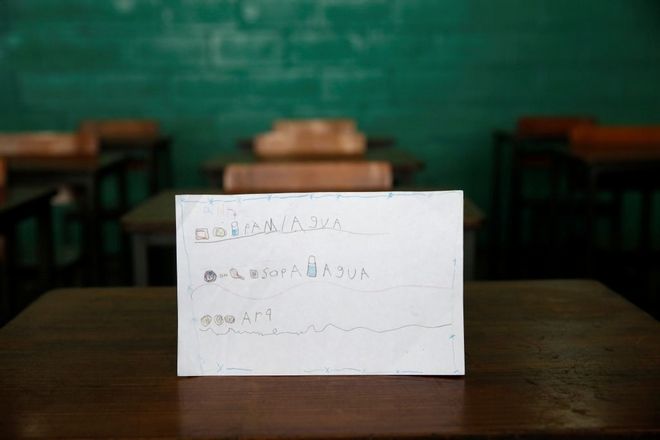 PAM/AgUA
SOPA AgUA
Arq